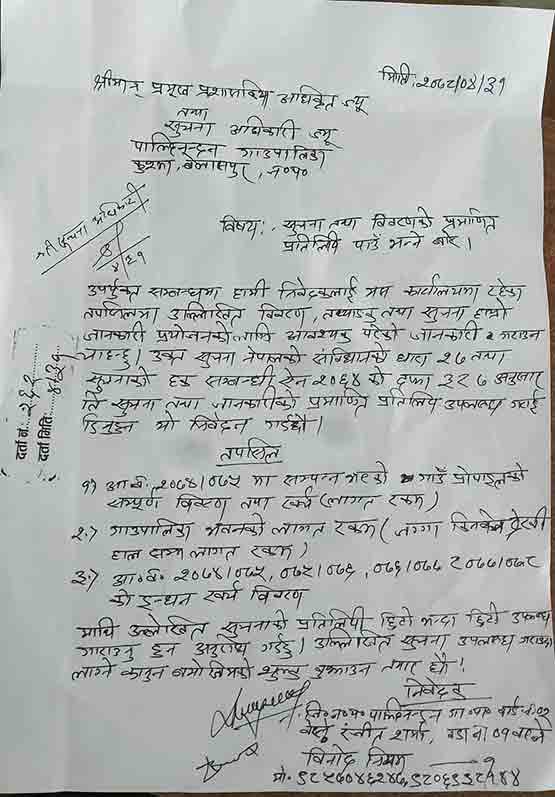 मिति: २०७८/०४/३१
श्रीमान् प्रमुख प्रशासकिय अधिकृत ज्यू
तथा
सूचना अधिकारी ज्यू
पाल्हिनन्दन गाउपालिका
कुश्मा, बेलासपुर, न०प०
श्री सूचना अधिकारी
४/३१
विषय:- सूचना तथा विवरणको प्रमाणित
प्रतिलिपि पाउँ भन्ने बारे।
उपर्युक्त सम्बन्धमा हामी निवेदकलाई त्यस कार्यालयमा रहेका
तपशिलमा उल्लिखित विवरण, तथ्याङ्क तथा सूचना हाम्रो
जानकारी प्रयोजनको लागि आवश्यक परेको जानकारी गराउन
चाहन्छु। उक्त सूचना नेपालको संविधानको धारा २७ तथा
सूचनाको हक सम्बन्धी ऐन २०६४ को दफा ३ र ७ अनुसार
ति सूचना तथा जानकारीको प्रमाणित प्रतिलिपि उपलब्ध गराई
दिनुहुन यो निवेदन गर्दछौ।
दर्ता नं.:
दर्ता मिति:
तपसिल
१) आ.ब. २०७४/०७५ मा सम्पन्न भएको गाउँ प्रोफाइलको
सम्पूर्ण विवरण तथा खर्च (लागत रकम)
२.) गाउपालिका भवनको लागत रकम (जग्गा किनबेच देखी
हाल सम्म लागत रकम)
३.) आ.ब. २०७४/०७५, ०७५/०७६, ०७६/०७७ र ०७७/०७८
को इन्धन खर्च विवरण
माथि उल्लेखित सूचनाको प्रतिलिपी छिटो भन्दा छिटो उपलब्ध
गराउनु हुन अनुरोध गर्दछु। उल्लिखित सूचना उपलब्ध गराउदा
लाग्ने कानुन बमोजिमको शुल्क बुझाउन तयार छौ।
निवेदक
जि.न.प. पाल्हिनन्दन गा.पा. वार्ड नं ०१
बस्ने रंजीत शर्मा, वडा नं ०१ बस्ने
विनोद
मो. ९८५७०४६२४७, ९८०६९३८१४४